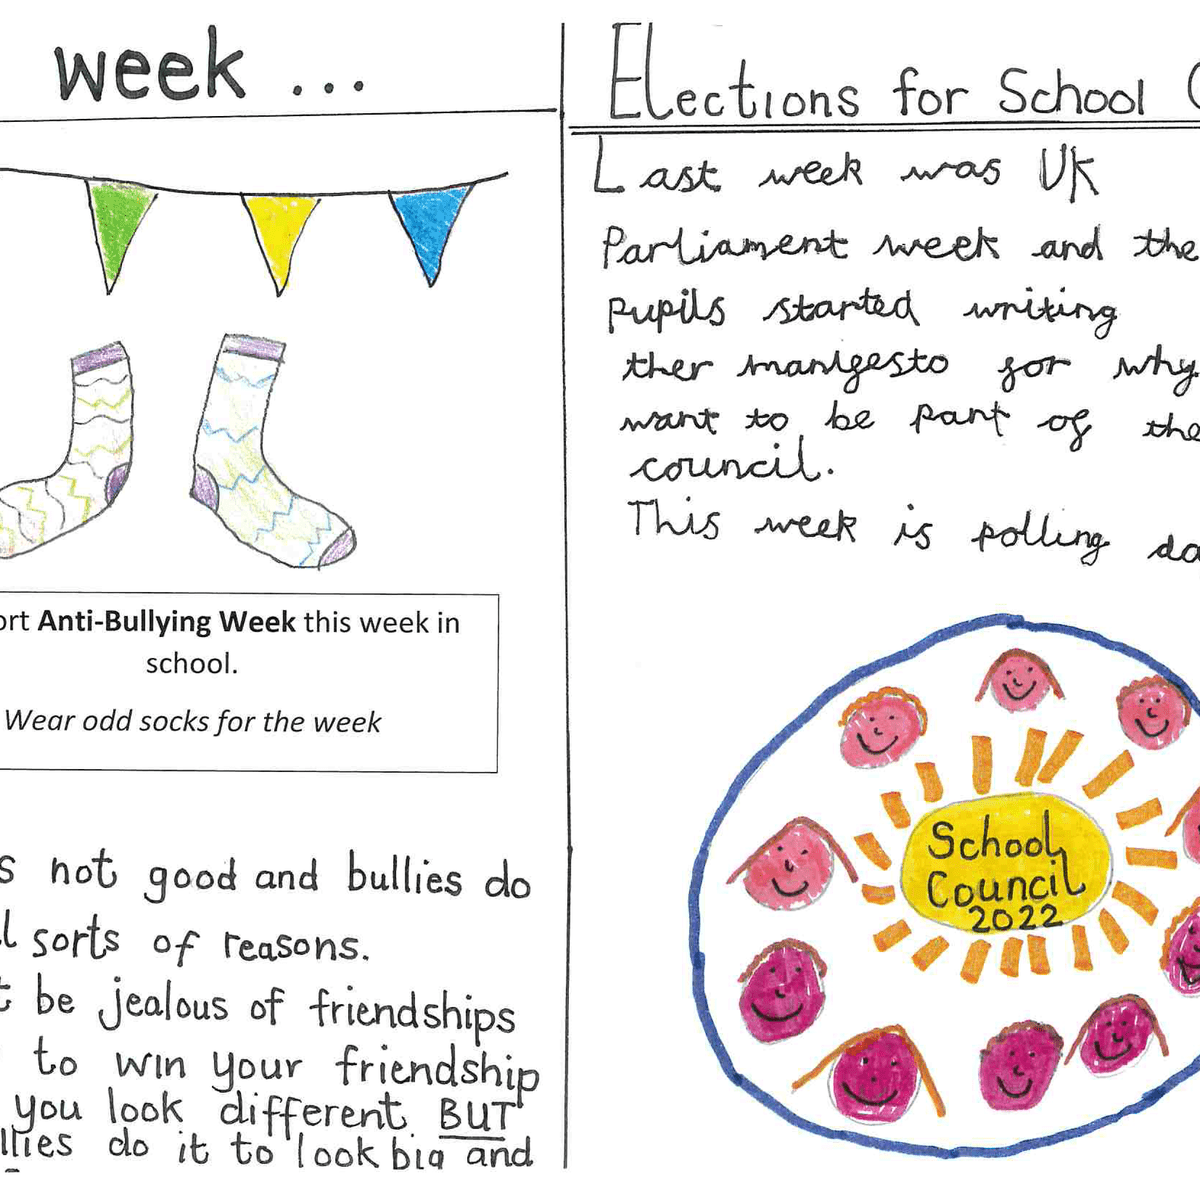 week ...
ort Anti-Bullying Week this week in
school.
Wear odd socks for the week
s not good and bullies do
l sorts of reasons.
t be jealous of friendships
to win your friendship
you look different BUT
llies do it to look big and
Elections for School C
Last week was UK
Parliament week and the
pupils started writing
ther manifesto for why
want to be part of the
council.
This week is polling da
School
Council
2022